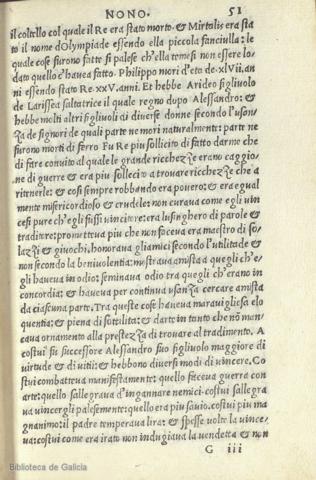 NONO. 51
il coltello col quale il Re era stato morto. & Mirtalis era sta
to il nome d'Olympiade essendo ella piccola fanciulla: le
quale cose furono fatte si palese ch'ella temesi non essere lo-
dato quello c'haueua fatto. Philippo mori d'eta de .xlvii. an
ni essendo stato Re .xxv. anni. Et hebbe Arideo figliuolo
de Larissea saltatrice il quale regno dapo Alessandro: &
hebbe molti altri figliuoli di diuerse donne secondo l'usan-
za de signori de quali parte ne mori naturalmente: parte ne
furono morti di ferro Fu Re piu sollicito di fatto d'arme che
di fare conuito al quale le grande ricchezze erano caggio,
ne di guerre & era piu sollecito a trouare ricchezze che a
ritenerle: & cosi sempre robbando era pouero: & era egual
mente misericordioso & crudele: non curaua come egli uin
cesi pure ch'egli fussi uincitore: era lusinghero di parole &
traditore: prometteua piu che non faceua era maestro di sol
lazzi & giuochi. honoraua gli amici secondo l'utilitade &
non secondo la beniuolentia: mostraua amista a quegli ch'e,
gli haueua in odio: seminaua odio tra quegli ch'erano in
concordia: & haueua per continua usanza cercare amista
da ciascuna parte. Tra queste cose haueua marauigliosa elo
quentia: & piena di sottilita: & d'arte in tanto che nō man-
caua ornamento alla prestezza di trouare al tradimento. A
costui fu successore Alessandro suo figliuolo maggiore di
uirtude & di uitii: & hebbono diuersi modi di uincere. Co
stui combatteua manifestamente: quello faceua guerra con
arte: quello sallegraua d'ingannare nemici. costui sallegra
ua uincergli palesemente: quello era piu sauio. costui piu ma
gnanimo: il padre temperaua lira: & spesse uolte la uince-
ua: costui come era irato non indugiaua la uendetta & non
G iii
Biblioteca de Galicia